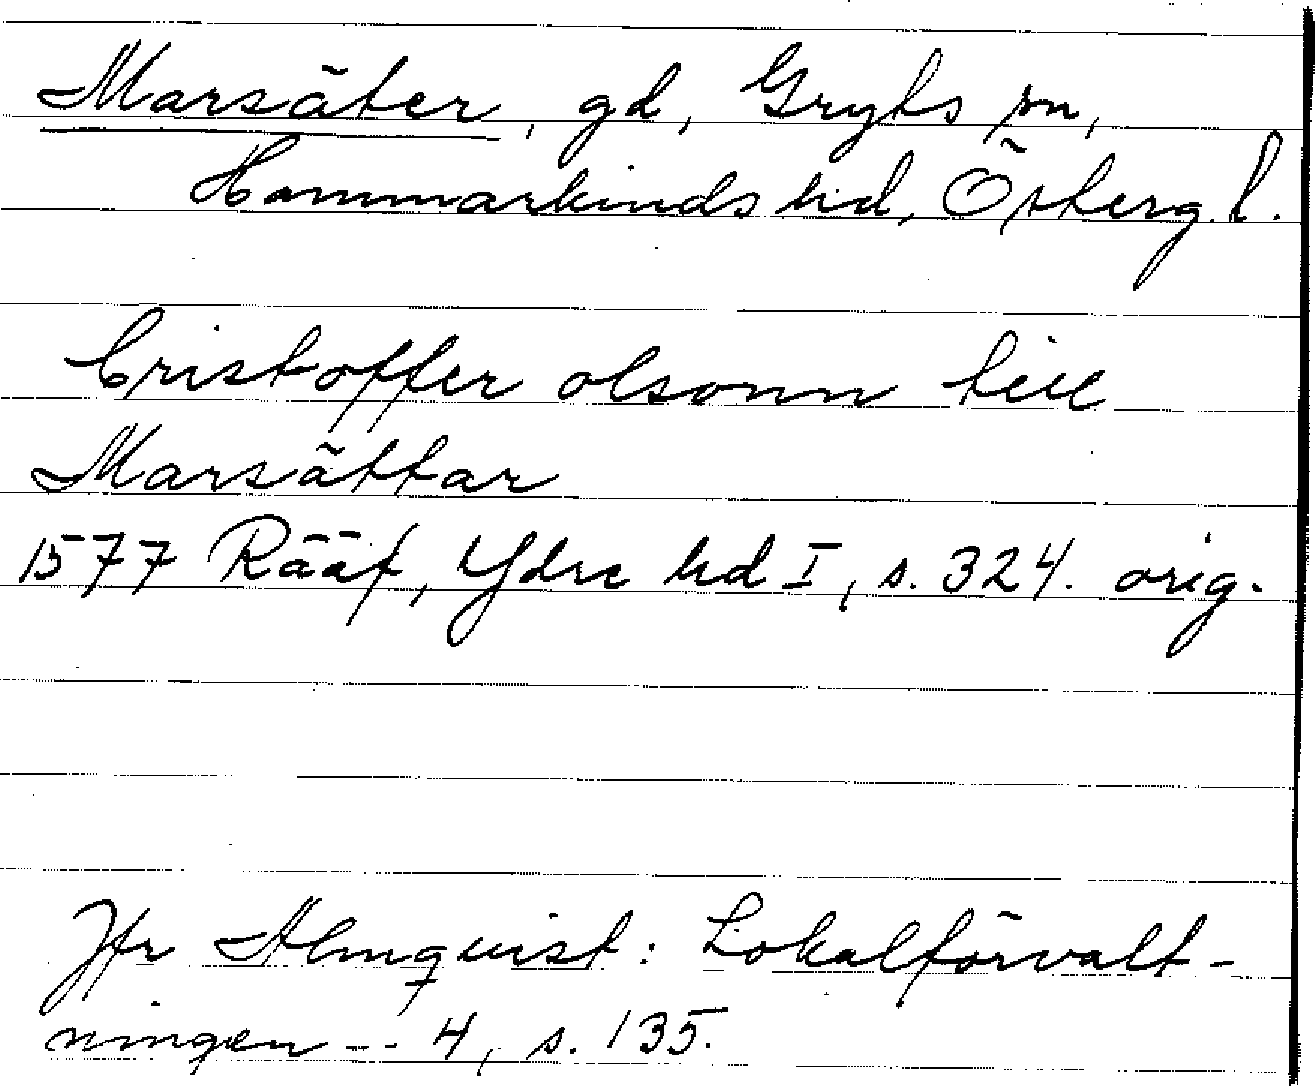 Marsäter, gd, Gryts sn,
Hammarkinds hd, Österg. l.
Cristoffer olsonn teil
Marsättar
1577 Rääf, Ydre hd I, s. 324. orig.
Jfr Almquist: Lokalförvalt-
ningen -- 4, s. 135.